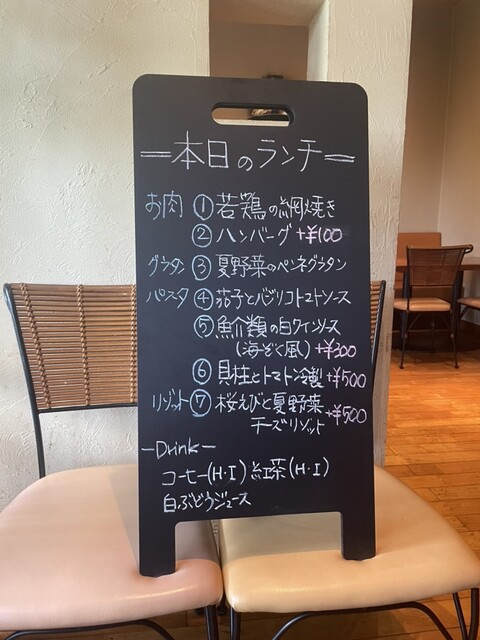 =本日のランチ=
お肉 ①若鶏の網焼き
②ハンバーグ+¥100
グラタン ③夏野菜のペンネグラタン
パスタ ④茄子とバジリコトマトソース
⑤魚介類の白ワインソース
(海ぞく風)+¥300
⑥貝柱とトマト冷製+¥500
リゾット⑦桜えびと夏野菜+¥500
チーズリゾット
-Drink-
コーヒー(H・I) 紅茶(H・I)
白ぶどうジュース